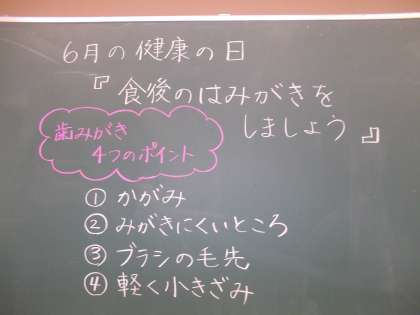 6月の健康の日
『食後のはみがきを
しましょう』
歯みがき
4つのポイント
① かがみ
② みがきにくいところ
③ ブラシの毛先
④ 軽く小きざみ